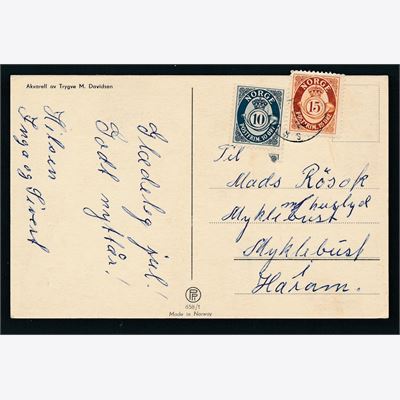 Akvarell av Trygve M. Davidsen
Gladeleg jul!
Godt nyttår!
Hilsen
Inga og Sivert
NORGE
10
POSTFRIM. 10 ØRE
NORGE
15
POSTFRIM. 15 ØRE
Til
Mads Rösok
m/ huslyd
Myklebust
Myklebust
i
Haram.
658/1
Made in Norway